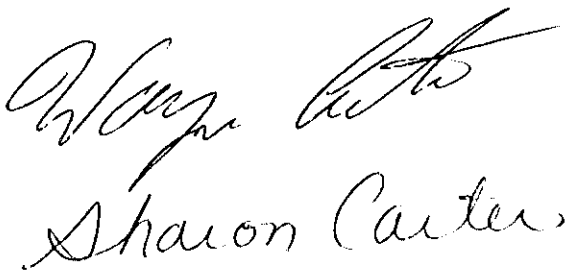 Wayne Carter
Sharon Carter.